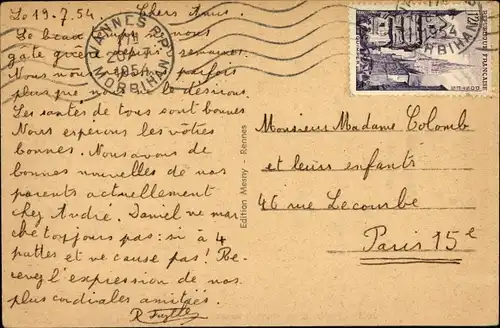 Le 19.7.54 Chers Amis.
Le beau temps ne nous
gâte guère depuis semaines.
Nous nous parfois
plus que nous le désirons.
Les santés de tous sont bonnes
Nous espérons les vôtres
bonnes. Nous avons de
bonnes nouvelles de nos
parents actuellement
chez André. Daniel ne mar
che toujours pas: si à 4
pattes et ne cause pas! Re-
cevez l'expression de nos
plus cordiales amitiés.
R
VANNES R.P.
1954
MORBIHAN
1954
MORBIHAN
12F
RÉPUBLIQUE FRANÇAISE
Edition Mesny - Rennes
Monsieur Madame Colomb
et leurs enfants
46 rue Lecourbe
Paris 15e